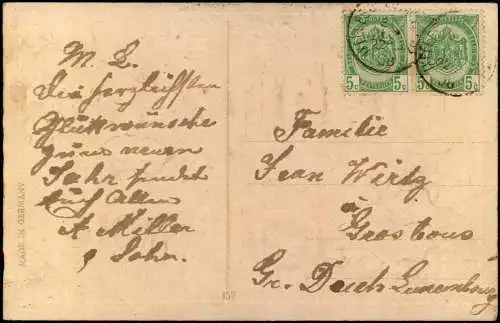 M. L.
Die herzlichsten
Glückwünsche
zum neuen
Jahr sendet
Euch Allen
A Miller
& Sohn.
Familie
Jean Wirtz
à
Grostous
Gr. Duch Luxemburg
MADE IN GERMANY
152
5c 5c 5c 5c